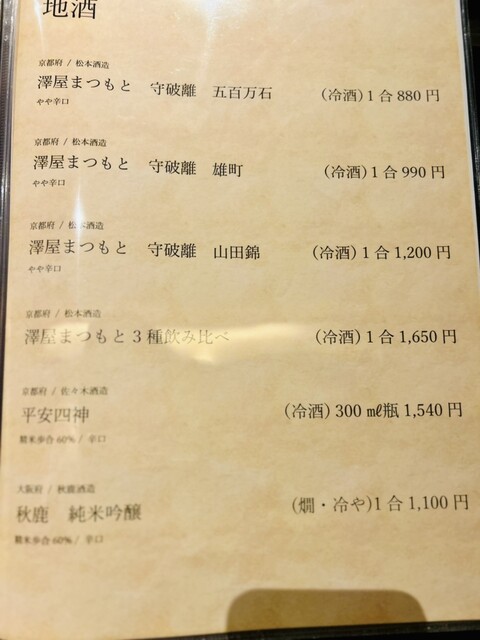 地酒
京都府 / 松本酒造
澤屋まつもと 守破離 五百万石 (冷酒) 1 合 880 円
やや辛口
京都府 / 松本酒造
澤屋まつもと 守破離 雄町 (冷酒) 1 合 990 円
やや辛口
京都府 / 松本酒造
澤屋まつもと 守破離 山田錦 (冷酒) 1 合 1,200 円
やや辛口
京都府 / 松本酒造
澤屋まつもと 3 種飲み比べ (冷酒) 1 合 1,650 円
京都府 / 佐々木酒造
平安四神 (冷酒) 300 ㎖瓶 1,540 円
精米歩合 60% / 辛口
大阪府 / 秋鹿酒造
秋鹿 純米吟醸 (燗・冷や)1 合 1,100 円
精米歩合 60% / 辛口